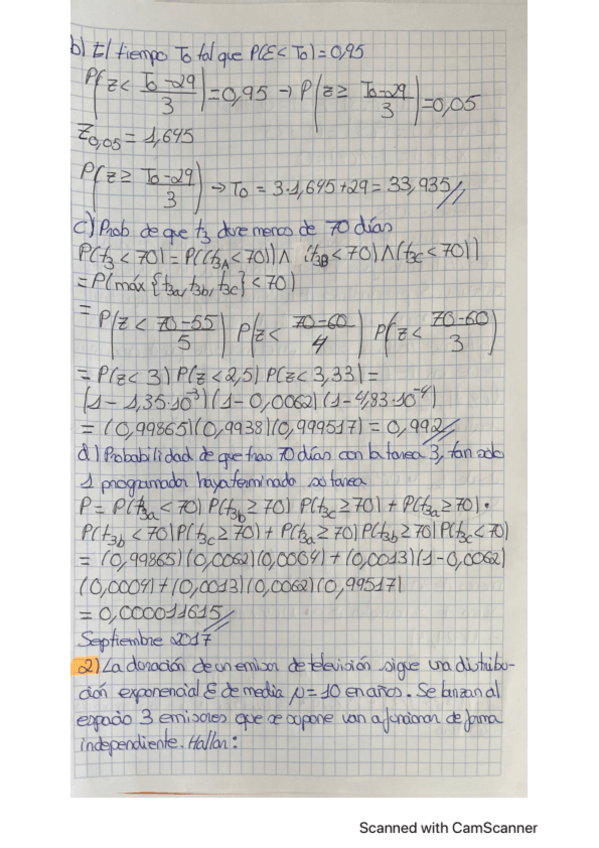 b) El tiempo To tal que P(E < To) = 0,95
P(z < (To-29)/3) = 0,95 → P(z ≥ (To-29)/3) = 0,05
Z0,05 = 1,645
P(z ≥ (To-29)/3) → To = 3·1,645+29 = 33,935
c) Prob de que t3 dure menos de 70 días
P(t3 < 70) = P((t3A < 70)) ∧ (t3B < 70) ∧ (t3C < 70))
= P(máx {t3a, t3b, t3c} < 70)
= P(z < (70-55)/5) P(z < (70-60)/4) P(z < (70-60)/3)
= P(z < 3) P(z < 2,5) P(z < 3,33) =
(1 - 1,35·10⁻³) (1 - 0,0062) (1 - 4,83·10⁻⁴)
= (0,99865)(0,9938)(0,999517) = 0,992
d) Probabilidad de que tras 70 días con la tarea 3, tan solo
1 programador haya terminado su tarea
P = P(t3a < 70) P(t3b ≥ 70) P(t3c ≥ 70) + P(t3a ≥ 70) ·
P(t3b < 70) P(t3c ≥ 70) + P(t3a ≥ 70) P(t3b ≥ 70) P(t3c < 70)
= (0,99865)(0,0062)(0,0004) + (0,0013)(1-0,0062)
(0,0004) + (0,0013)(0,0062)(0,99517)
= 0,000011615
Septiembre 2017
2) La duración de un emisor de televisión sigue una distribu-
ción exponencial ξ de media μ = 10 en años. Se lanzan al
espacio 3 emisores que se supone van a funcionar de forma
independiente. Hallar:
Scanned with CamScanner